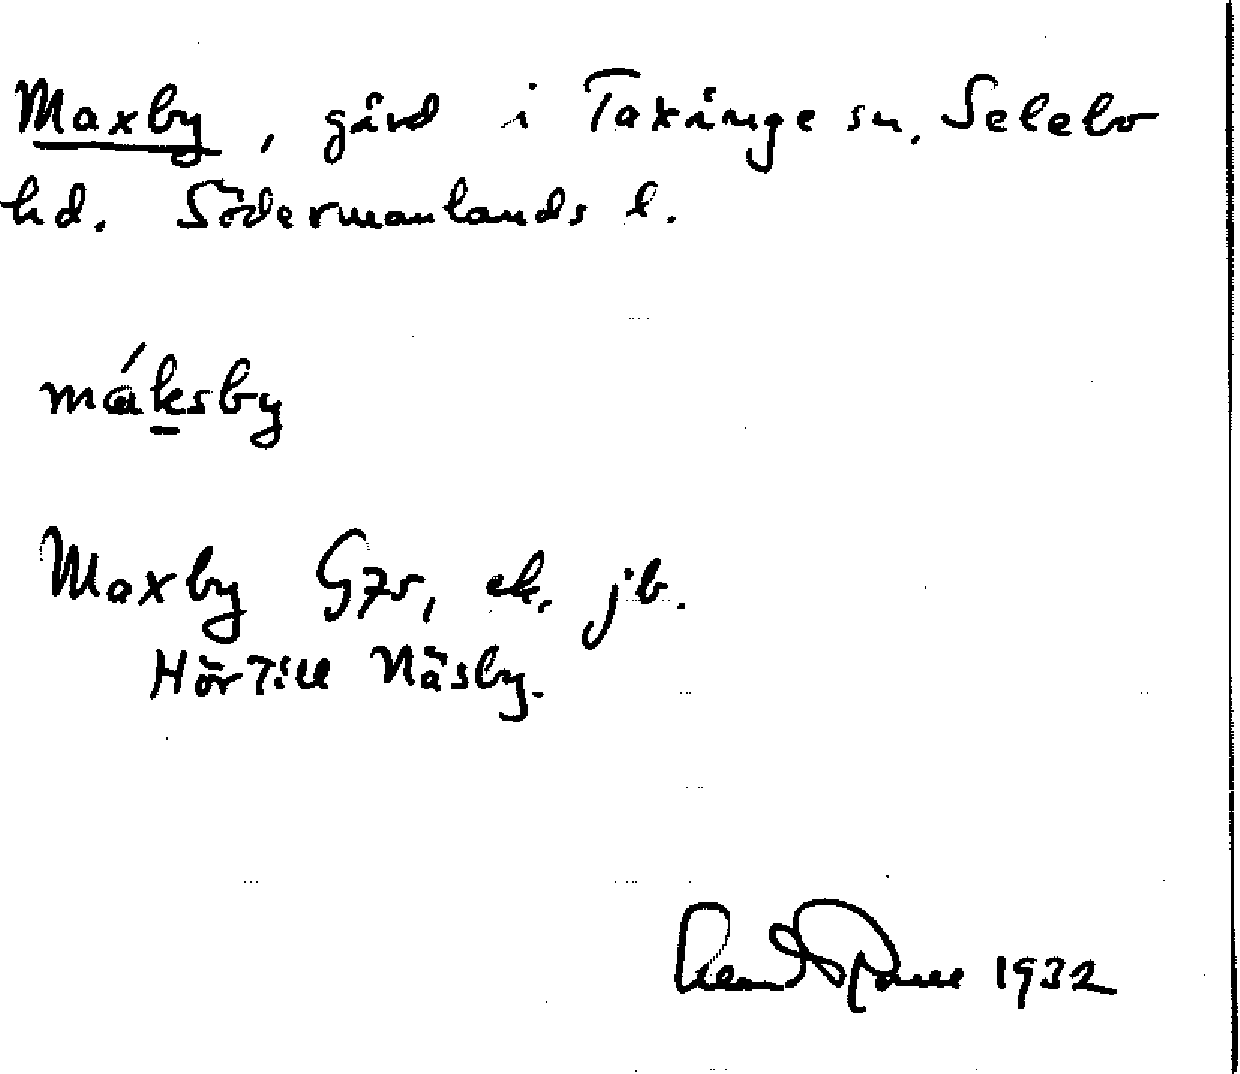 Maxby, gård i Taxinge sn. Selebo
hd. Södermanlands l.
máksby
Maxby Gzr, ek. jb.
Hör till Näsby.
1932